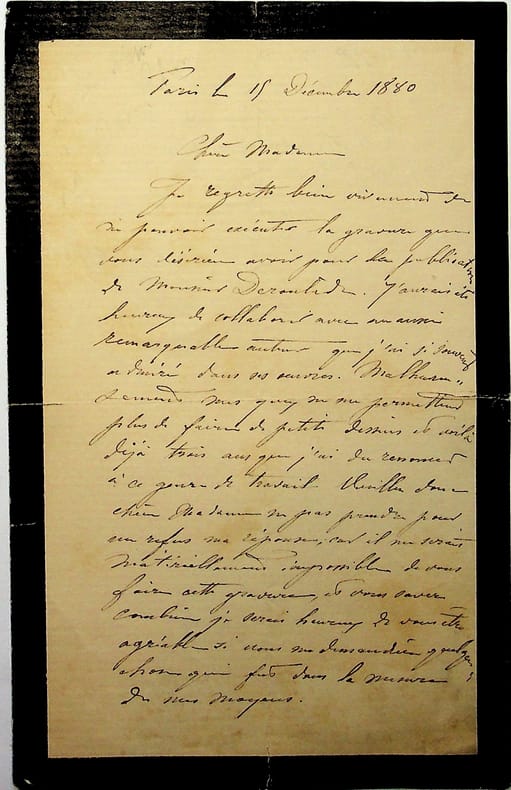 Paris le 15 Décembre 1880
Chère Madame
Je regrette bien vivement de
ne pouvoir exécuter la gravure que
vous désiriez avoir pour la publication
de Monsieur Deroulède. J'aurais été
heureux de collaborer avec un aussi
remarquable auteur que j'ai si souvent
admiré dans ses œuvres. Malheureu-
sement mes yeux ne me permettent
plus de faire de petits dessins et voilà
déjà trois ans que j'ai du renoncer
à ce genre de travail. Veuillez donc
chère Madame ne pas prendre pour
un refus ma réponse, car il me serait
matériellement impossible de vous
faire cette gravure, et vous savez
combien je serais heureux de vous être
agréable si vous me demandiez quelque
chose qui fut dans la mesure
de mes moyens.